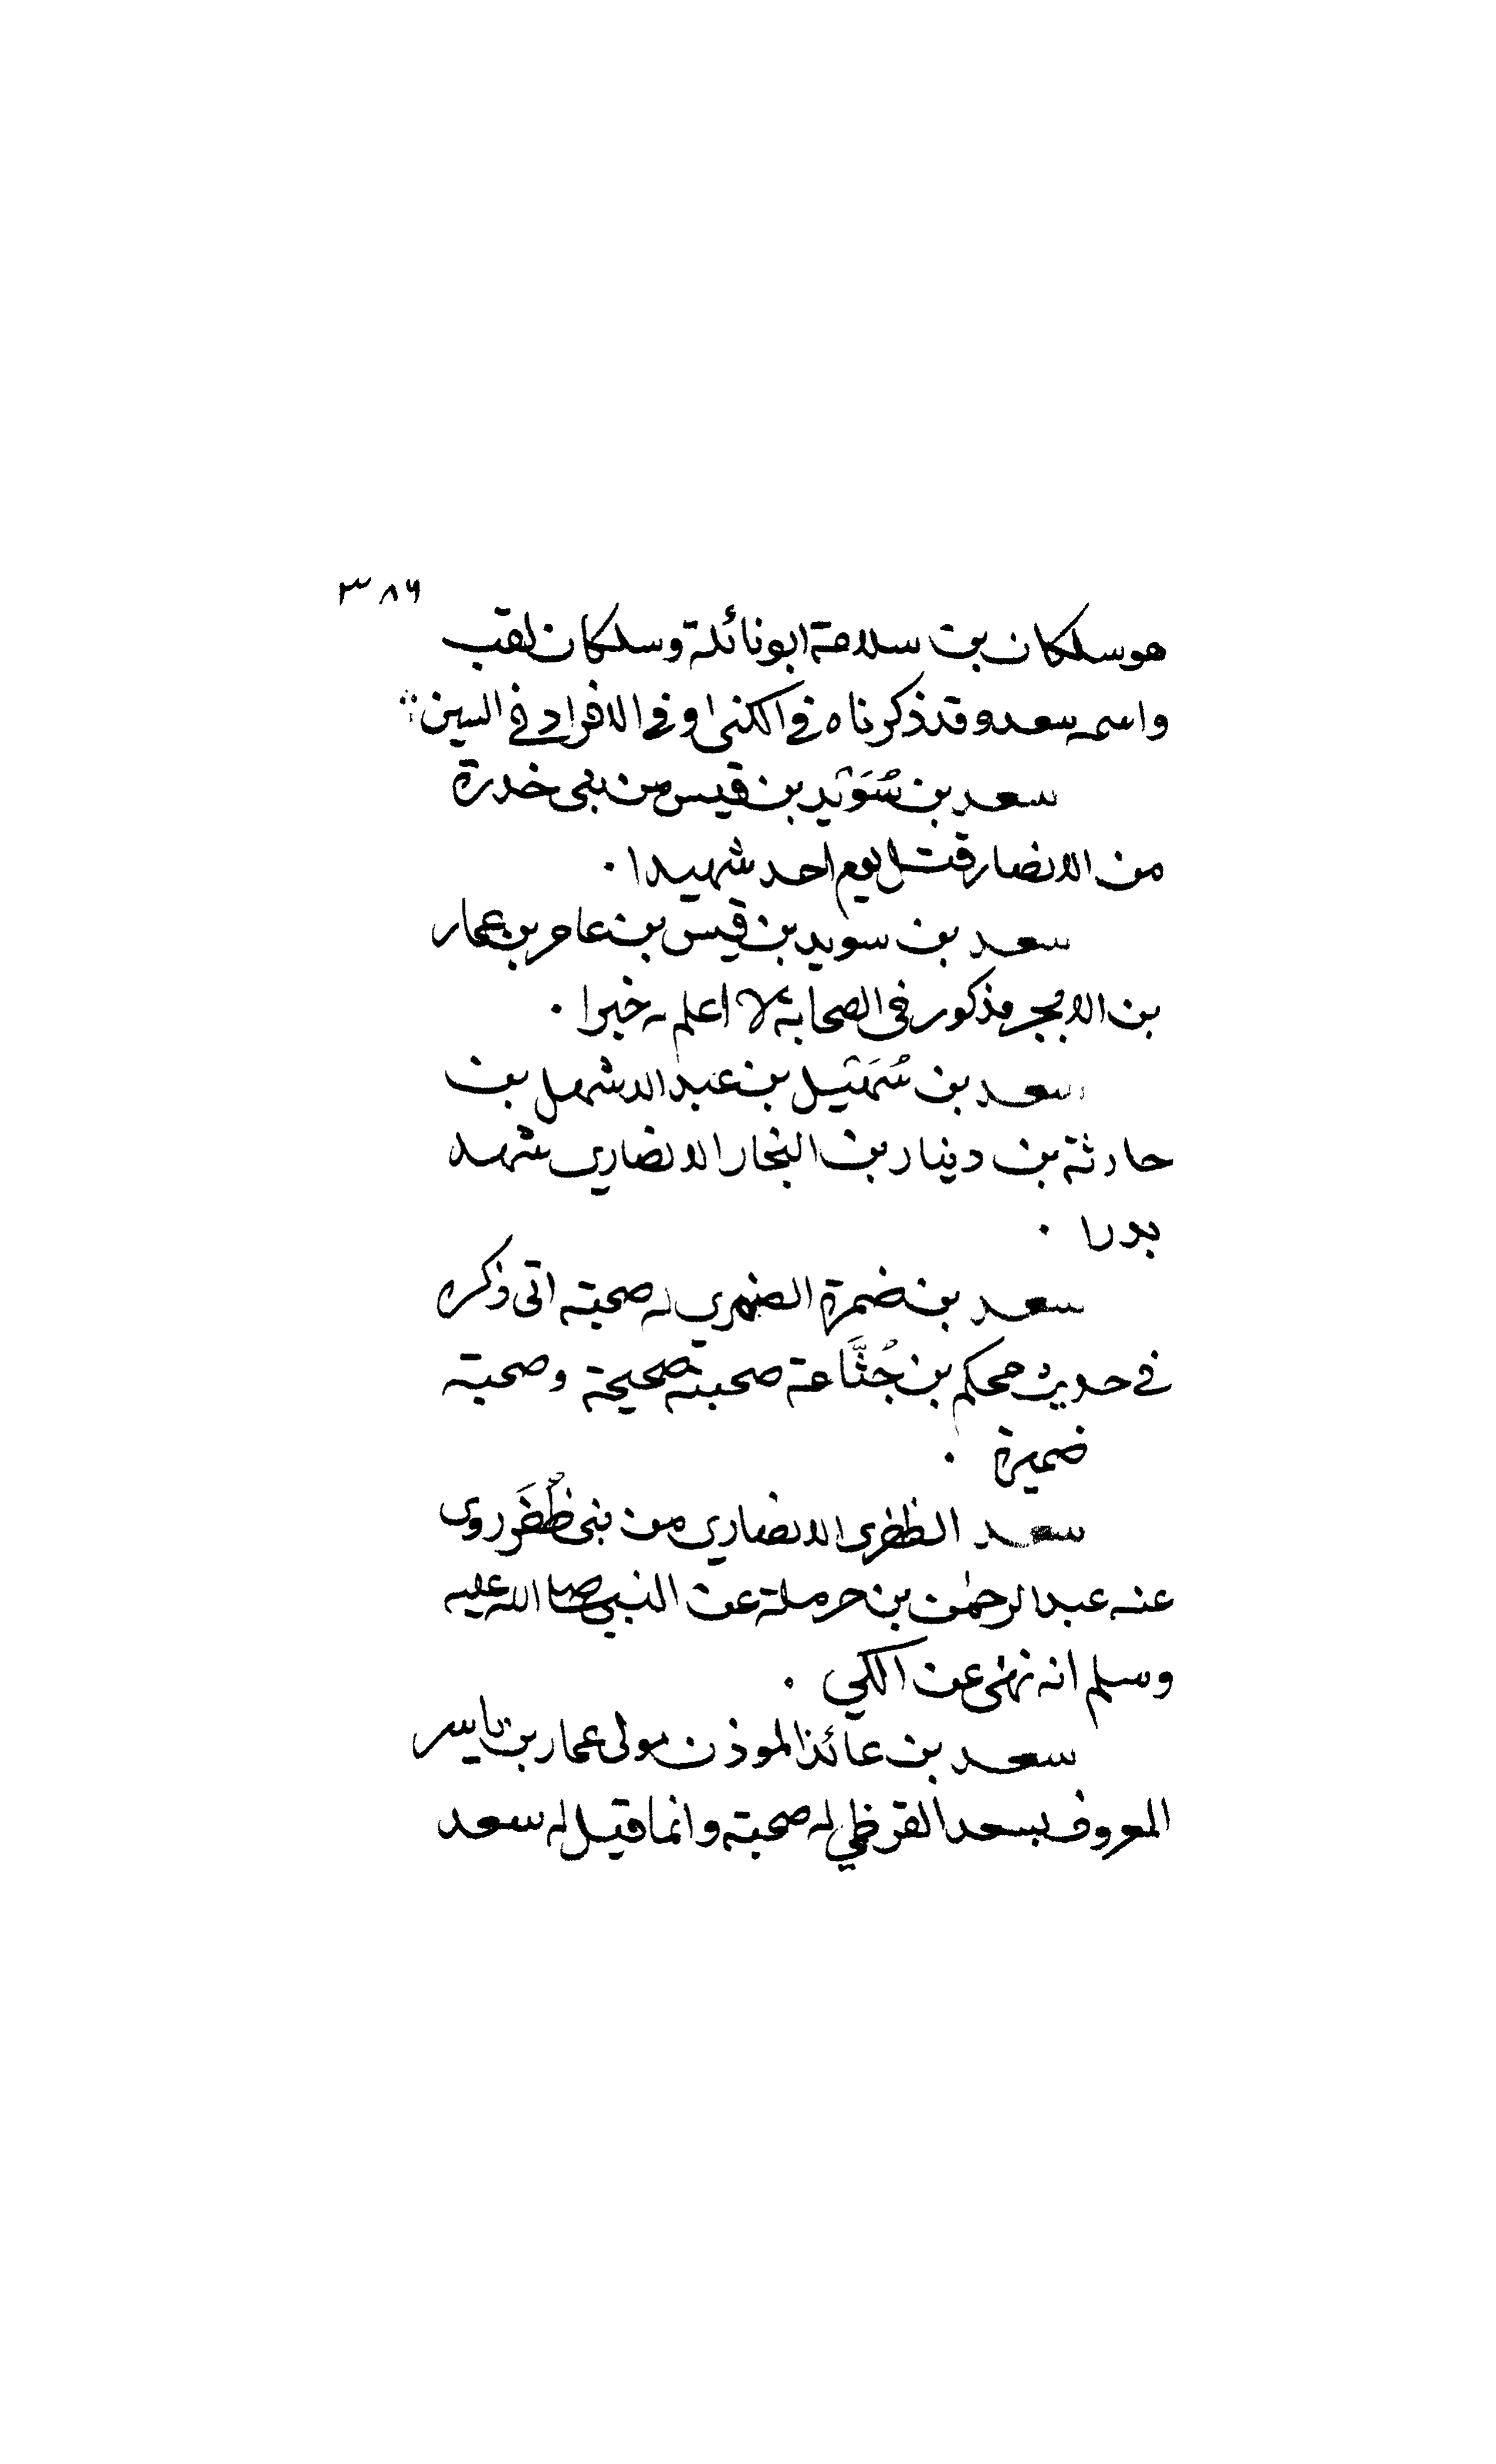 ٣٨٦
هو سلكان بن سلامة ابو نائلة وسلكان لقب
واسمه سعد وقد ذكرناه في الكنى او في الافراد في السين
سعد بن سُوَيْد بن قيس من بنى خدرة
من الانصار قتل يوم احد شهيدا .
سعد بن سويد بن قيس بن عامر بن عمار
بن الابجر مذكور فى الصحابة لا اعلم له خبرا .
سعد بن سُهَيْل بن عبد الاشهل بن
حارثة بن دينار بن النجار الانصاري شهد
بدرا .
سعد بن ضمرة الضمري له صحبته اتى ذكره
في حديث محكم بن جُثَّاعة صحبته صحيحة وصحبته
ضميرة .
سعد الظفرى الانصاري من بنى ظُفَر روى
عنه عبد الرحمٰن بن حرملة عن النبي صلى الله عليه
وسلم انه نهى عن الكي .
سعد بن عائذ الموذن مولى عمار بن ياسر
المعروف بسعد القرظي له صحبته وانما قيل له سعد